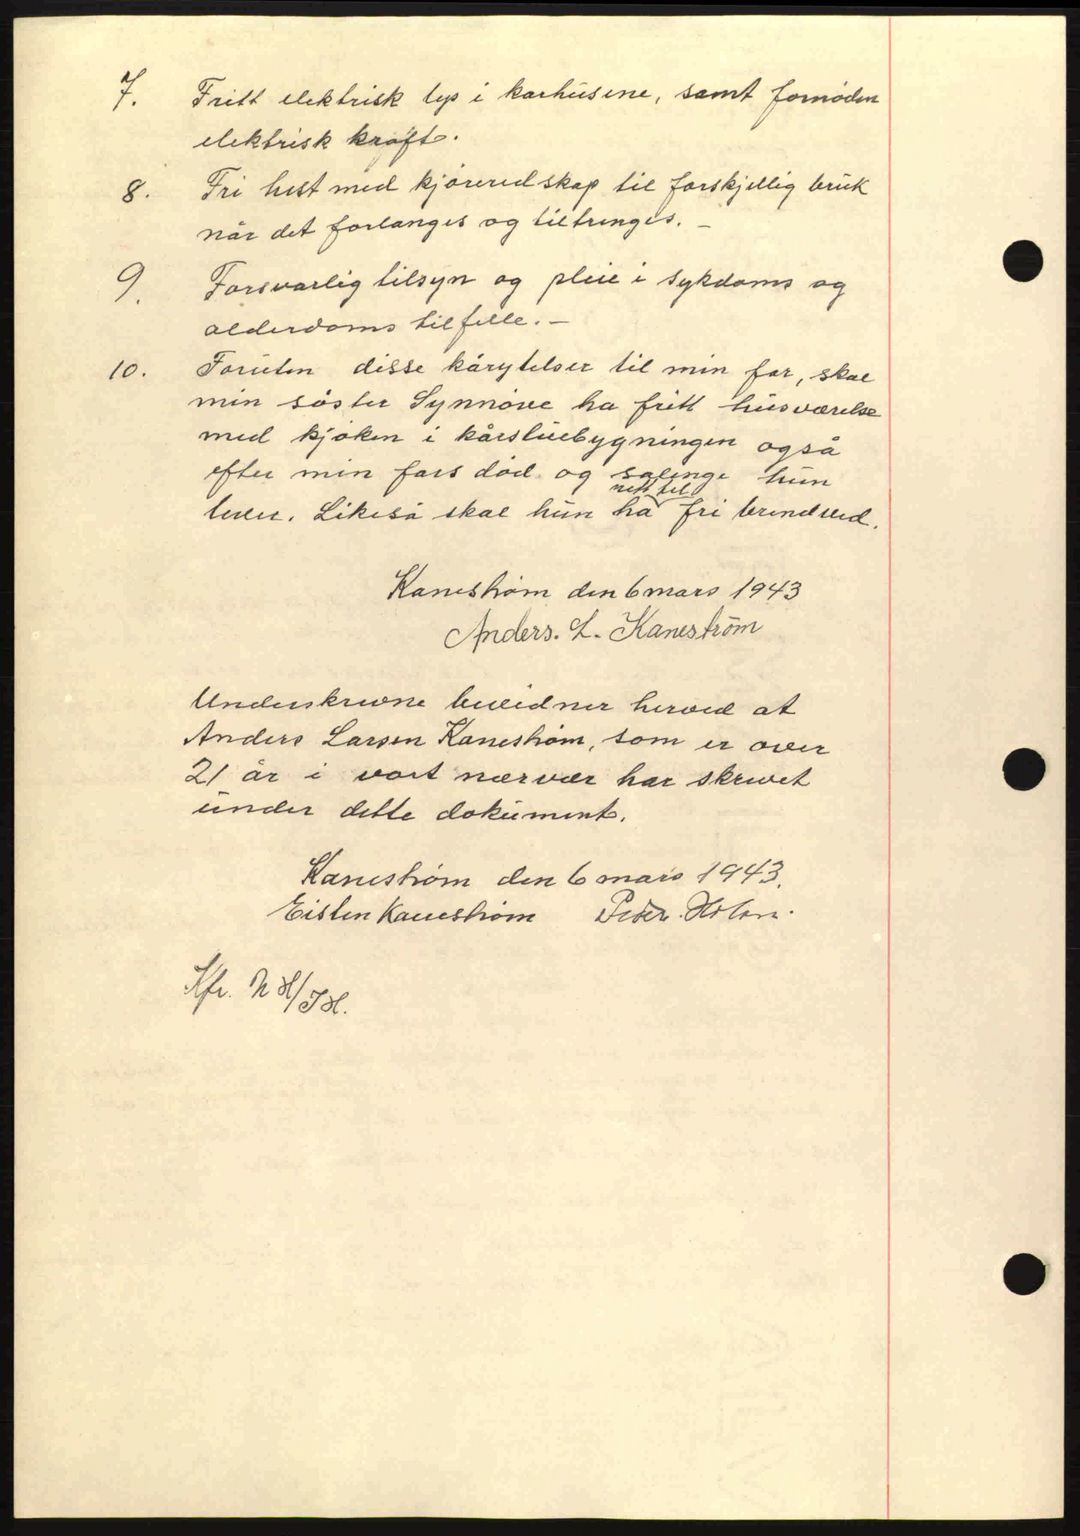 7. Fritt elektrisk lys i karhusene, samt fornöden
elektrisk kraft.
8. Fri hest med kjöreredskap til forskjellig bruk
når det forlanges og tiltrenges. —
9. Forsvarlig tilsyn og pleie i sykdoms og
alderdoms tilfelle. —
10. Foruten disse kårytelser til min far, skal
min söster Synnöve ha fritt husværelse
med kjöken i kårstuebygningen også
efter min fars död og salenge hun
rett til
lever. Likeså skal hun ha fri brendved.
Kaneström den 6 mars 1943
Anders. L. Kaneström
Underskrevne bevidner herved at
Anders Larsen Kaneström, som er over
21 år i vort nærvær har skrevet
under dette dokument.
Kaneström den 6 mars 1943.
Eisten Kaneström Peder. Holen.
Kfr. N H/JH.